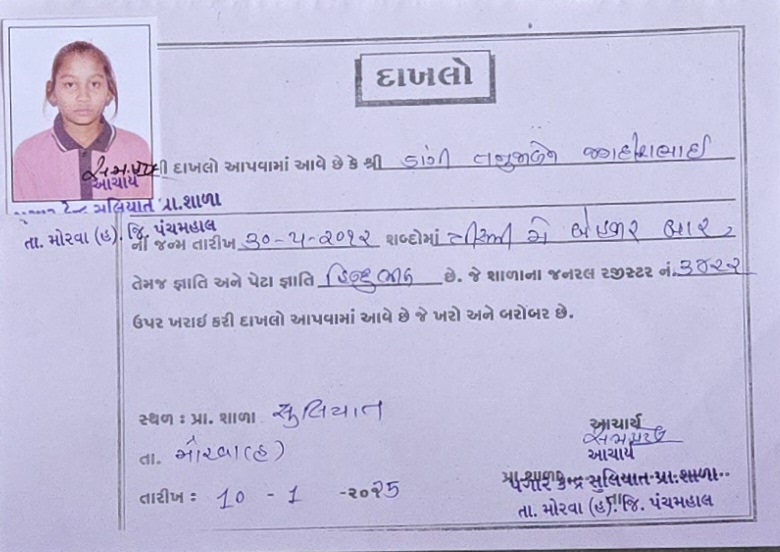 દાખલો
આથી દાખલો આપવામાં આવે છે કે શ્રી ડાંગી તનુજાબેન જગદીશભાઈ
આચાર્ય
પ્રા.શાળા
તા. મોરવા (હ). જિ. પંચમહાલ
ની જન્મ તારીખ ૩૦-૫-૨૦૧૨ શબ્દોમાં ત્રીસ્મી મે બેહજાર બાર
તેમજ જ્ઞાતિ અને પેટા જ્ઞાતિ હિન્દુ છે. જે શાળાના જનરલ રજીસ્ટર નં. ૩૪૨૨
ઉપર ખરાઈ કરી દાખલો આપવામાં આવે છે જે ખરો અને બરોબર છે.
સ્થળ : પ્રા. શાળા સુલિયાત
આચાર્ય
તા. મોરવા(હ)
આચાર્ય
પગાર કેન્દ્ર સુલિયાત પ્રા.શાળા
તારીખ : 10 - 1 -૨૦25
તા. મોરવા (હ). જિ. પંચમહાલ